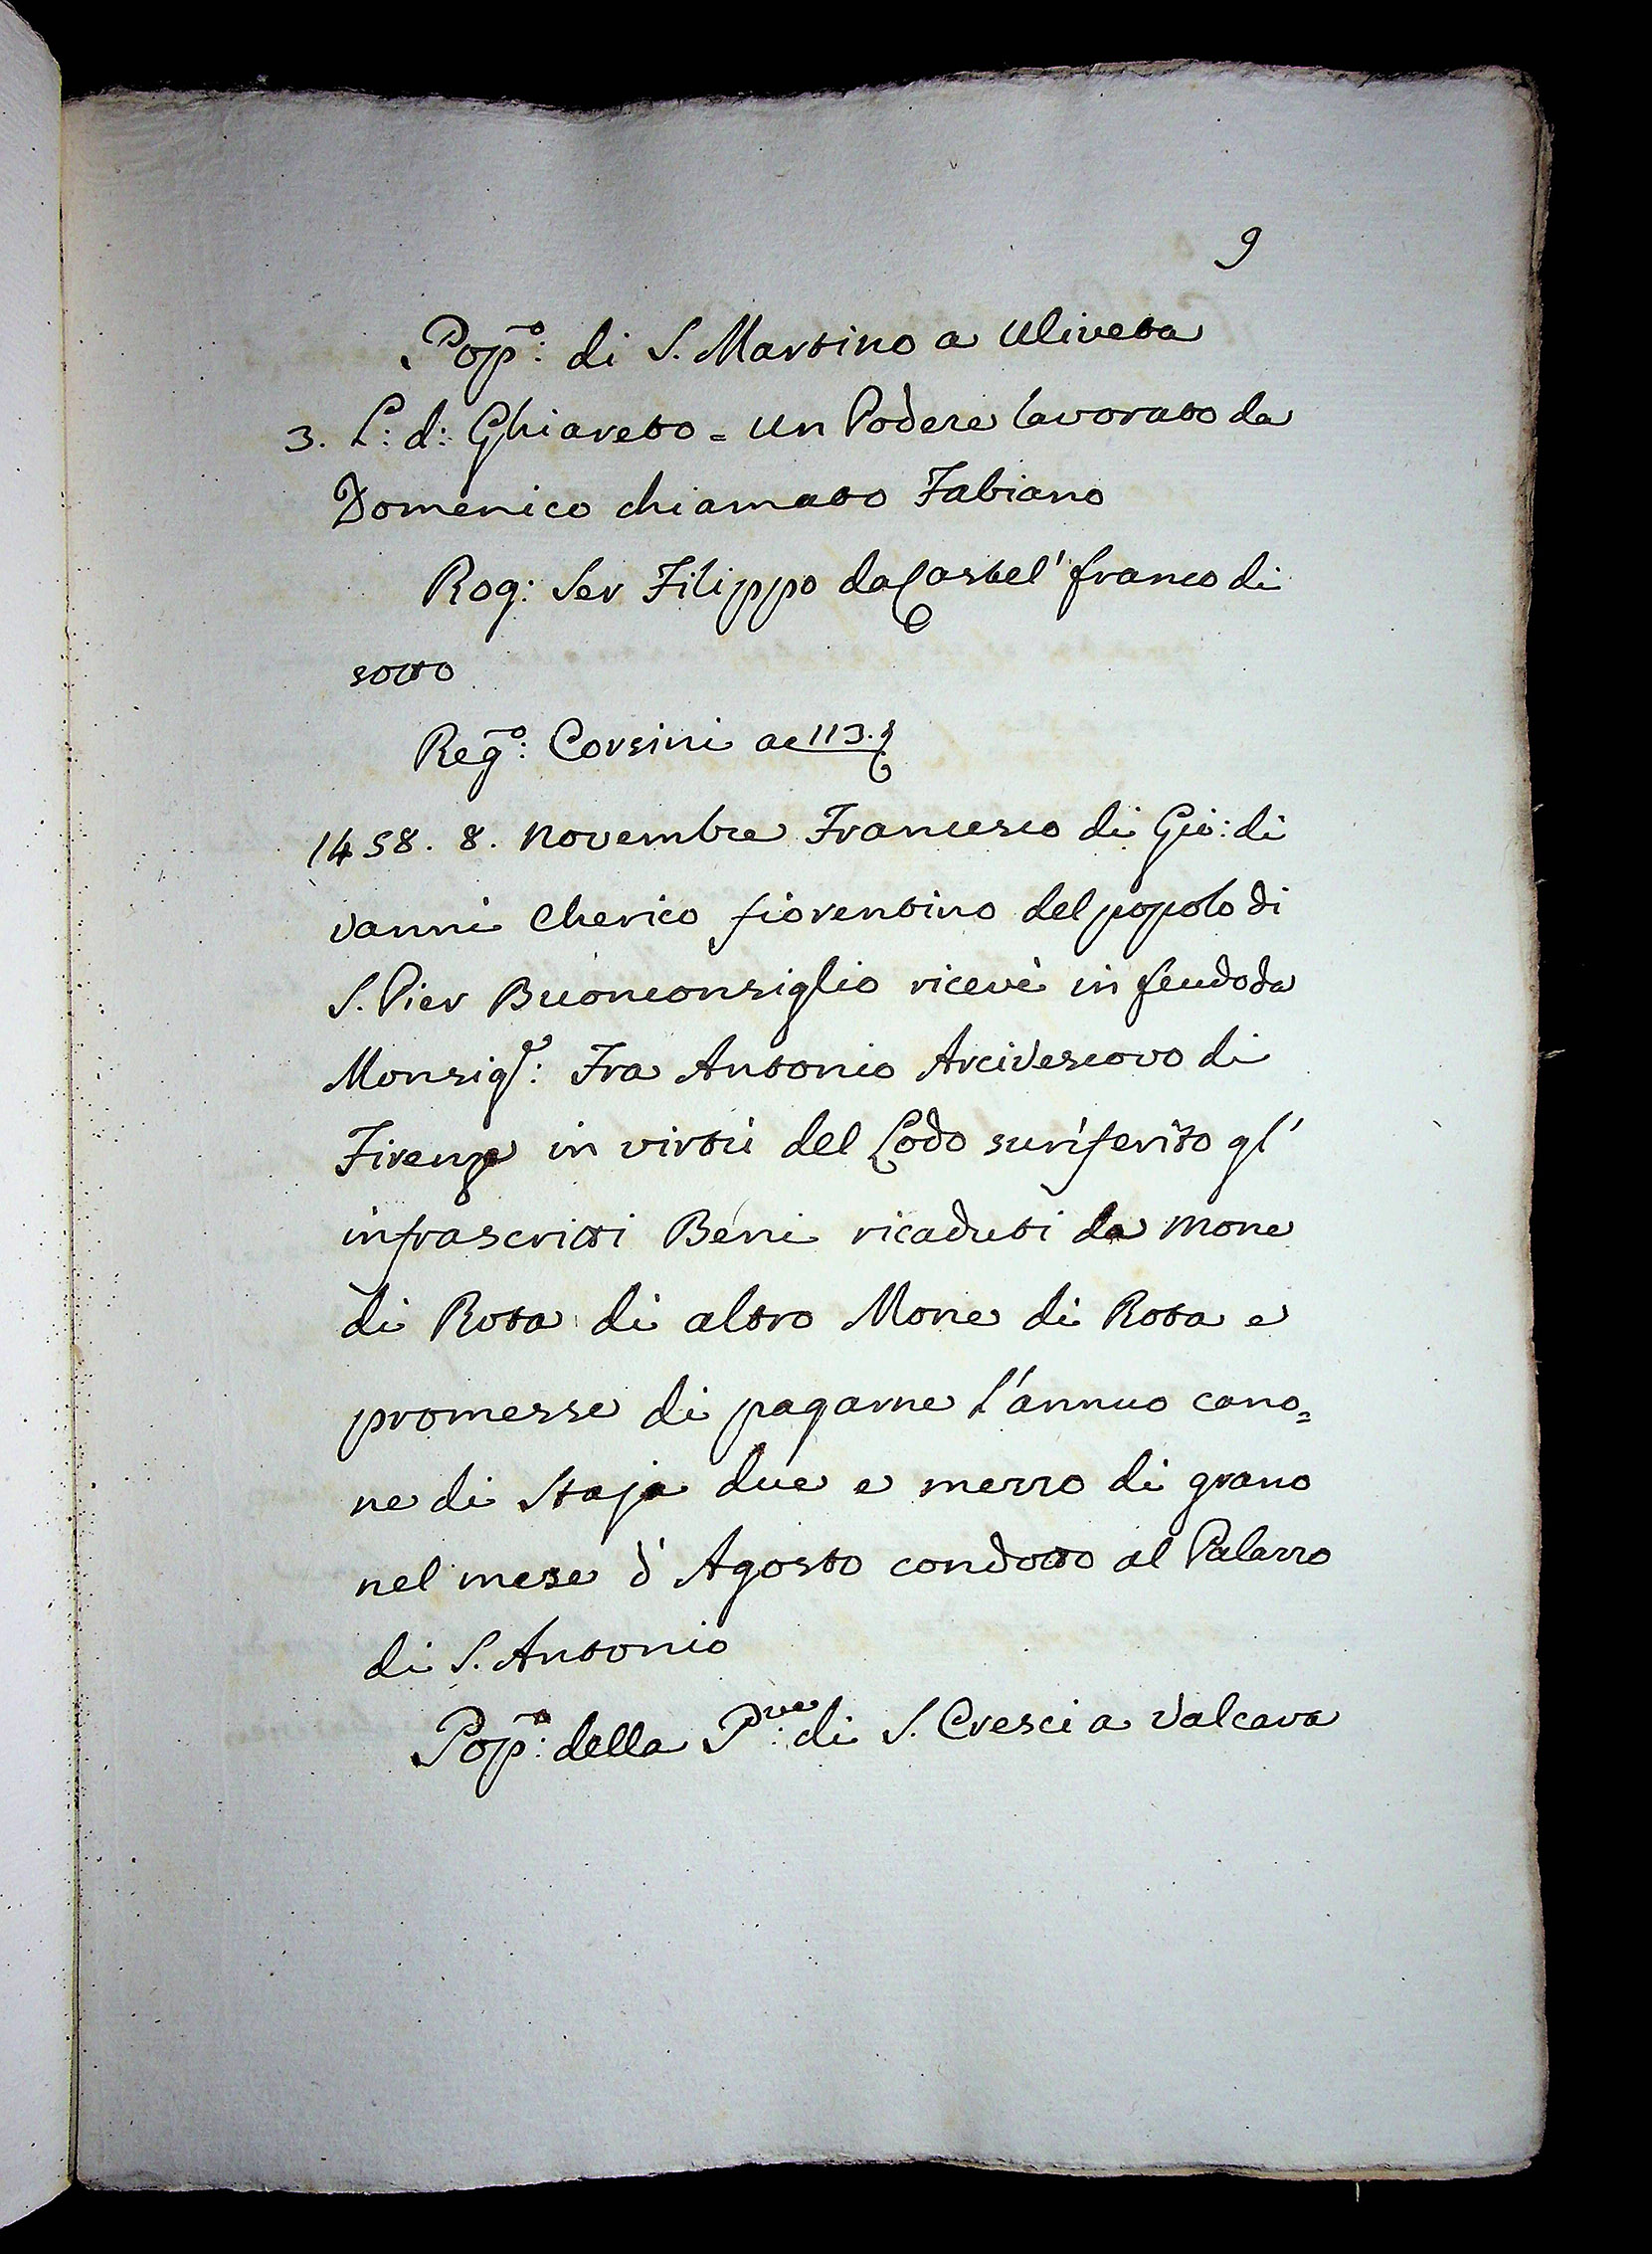 9
Pop.º: di S. Martino a Uliveta
3. L: d: Ghiareto = Un Podere lavorato da
Domenico chiamato Fabiano
Rog: Ser Filippo da Castel' franco di
sotto
Reg.º: Corsini ac 113.
1458. 8. Novembre Francesco di Gio: di
vanni Cherico fiorentino del popolo di
S. Pier Buonconsiglio ricevè in feudo da
Monsig.r: Fra Antonio Arcivescovo di
Firenze in virtù del Lodo suriferito gl'
infrascritti Beni ricaduti da Mone
di Rota di altro Mone di Rota e
promesse di pagarne l'annuo cano=
ne di Staja due e mezzo di grano
nel mese d'Agosto condotto al Palazzo
di S. Antonio
Pop.º: della P.ve: di S. Cresci a Valcava